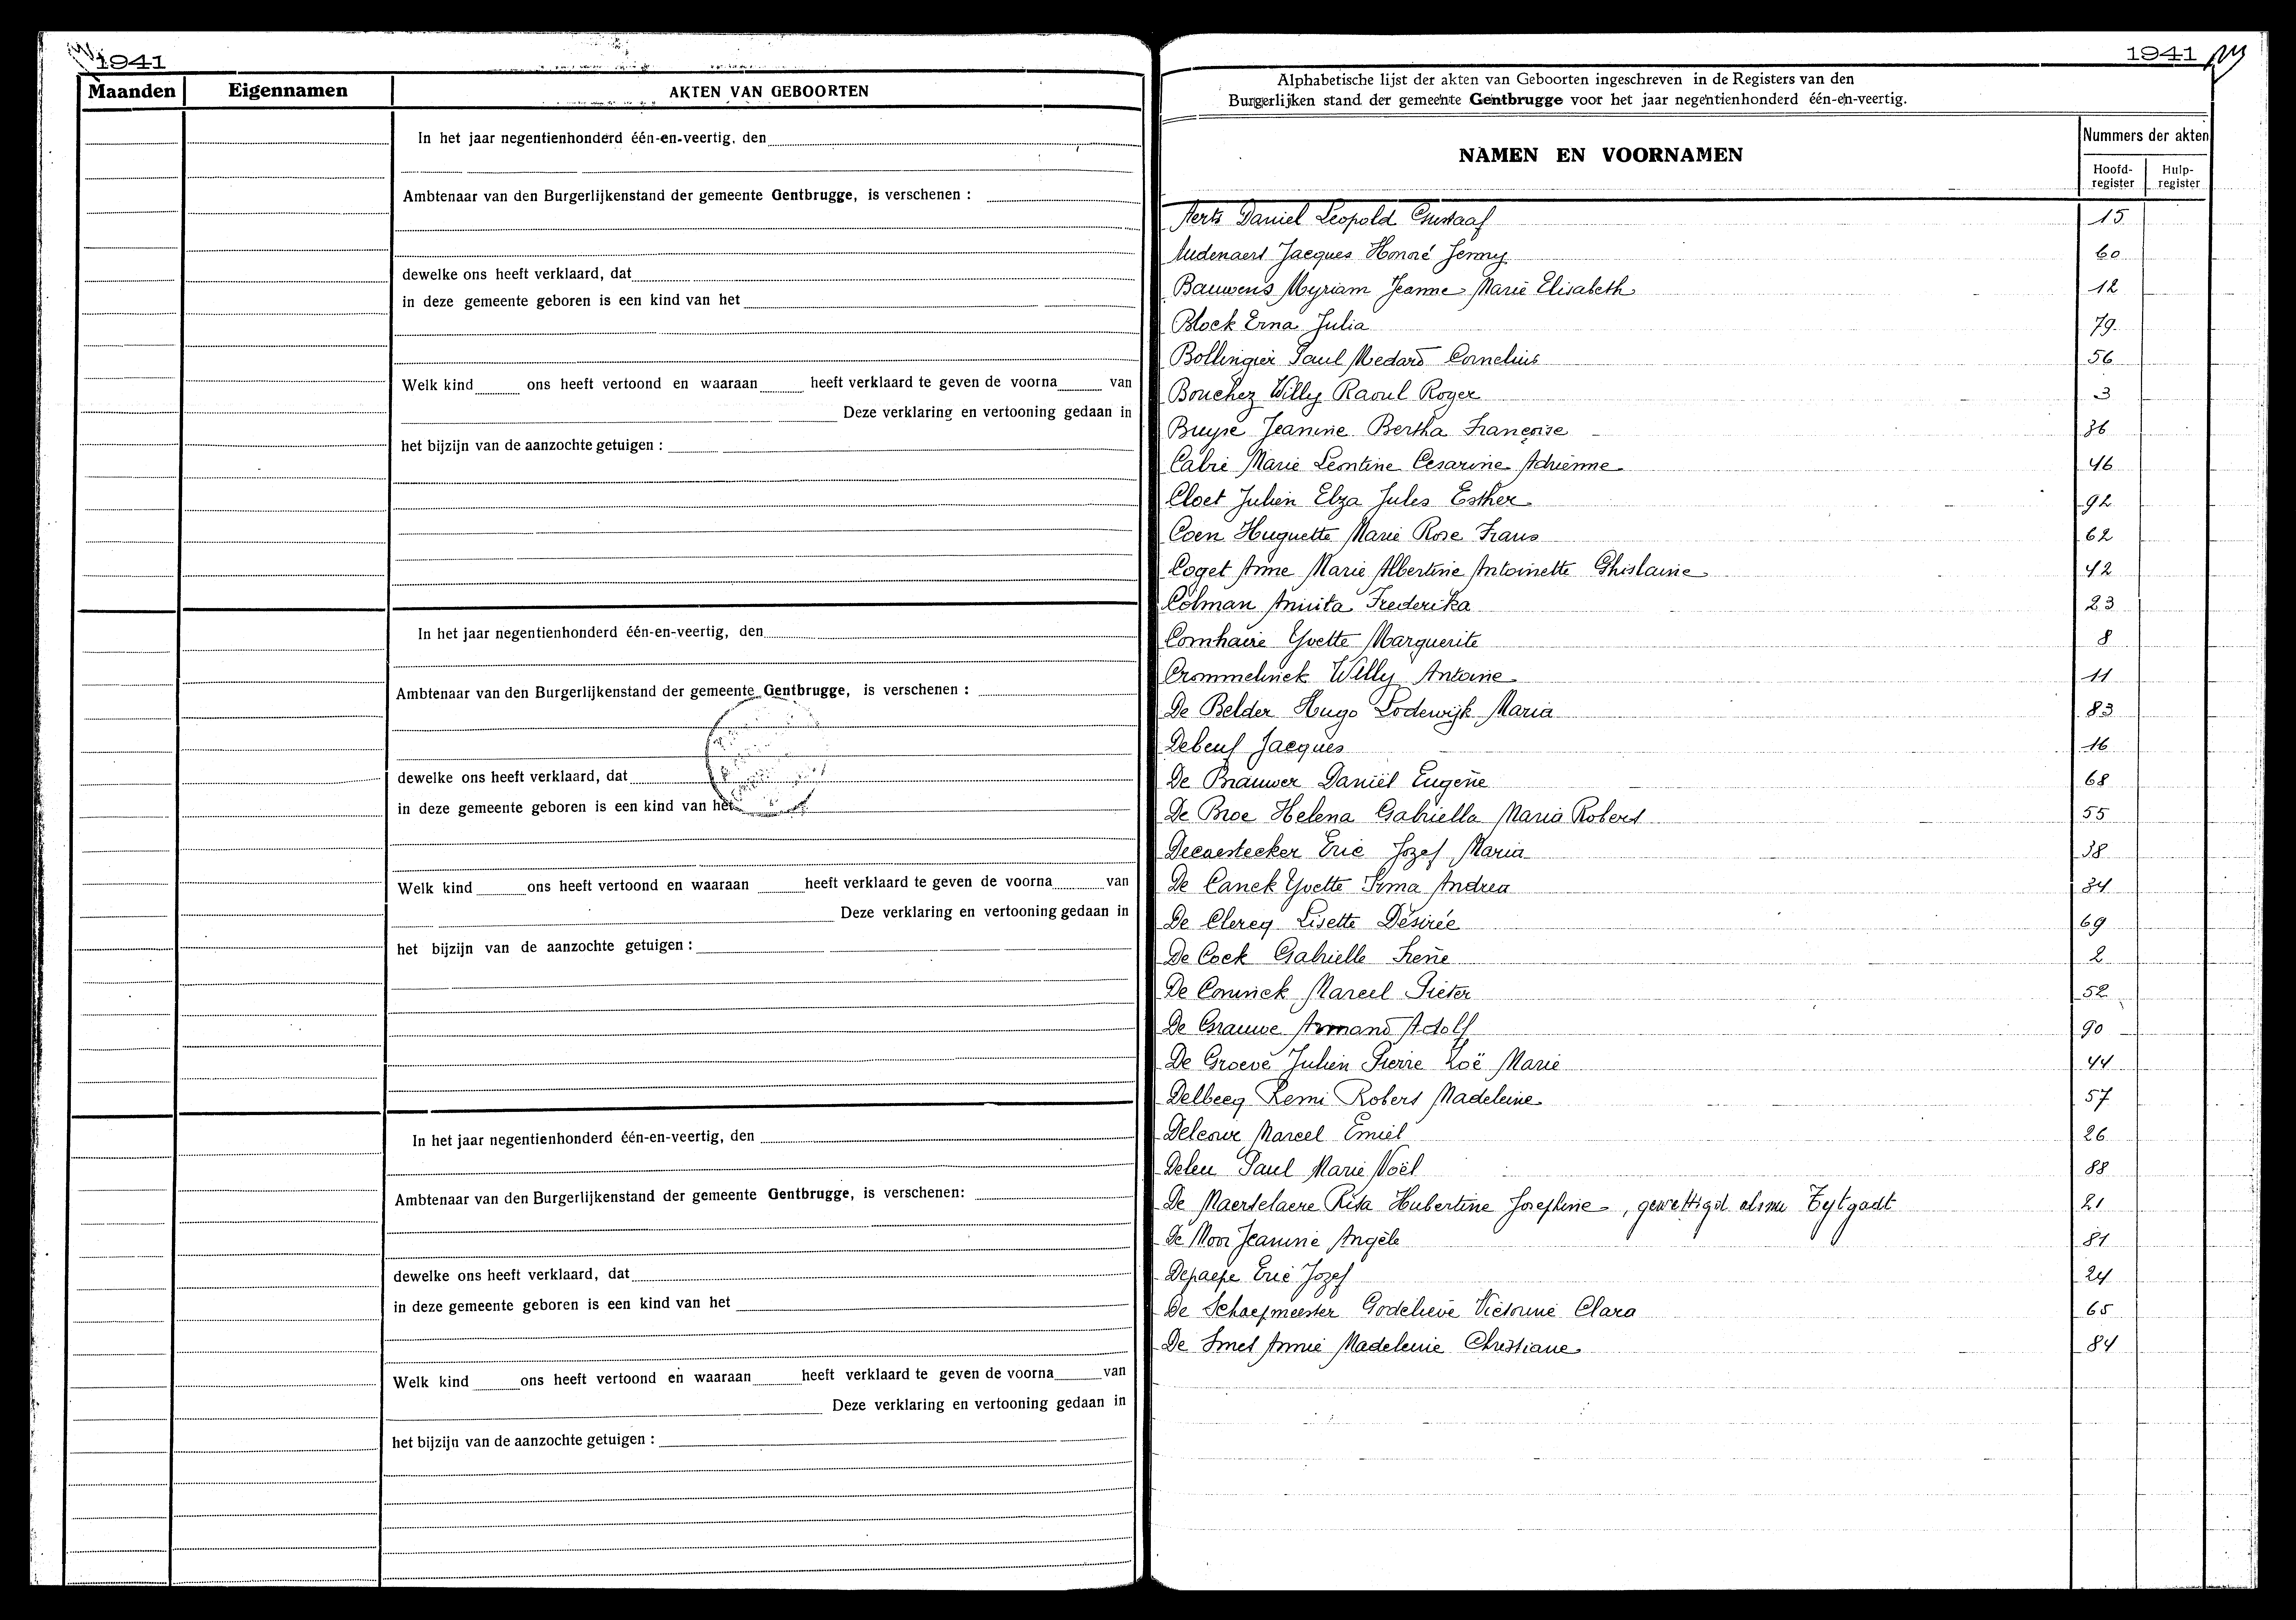 1941
Maanden Eigennamen AKTEN VAN GEBOORTEN
In het jaar negentienhonderd één-en-veertig. den
Ambtenaar van den Burgerlijkenstand der gemeente Gentbrugge, is verschenen :
dewelke ons heeft verklaard, dat
in deze gemeente geboren is een kind van het
Welk kind ons heeft vertoond en waaraan heeft verklaard te geven de voorna van
Deze verklaring en vertooning gedaan in
het bijzijn van de aanzochte getuigen :
In het jaar negentienhonderd één-en-veertig, den
Ambtenaar van den Burgerlijkenstand der gemeente Gentbrugge, is verschenen :
dewelke ons heeft verklaard, dat
in deze gemeente geboren is een kind van het
Welk kind ons heeft vertoond en waaraan heeft verklaard te geven de voorna van
Deze verklaring en vertooning gedaan in
het bijzijn van de aanzochte getuigen :
In het jaar negentienhonderd één-en-veertig, den
Ambtenaar van den Burgerlijkenstand der gemeente Gentbrugge, is verschenen:
dewelke ons heeft verklaard, dat
in deze gemeente geboren is een kind van het
Welk kind ons heeft vertoond en waaraan heeft verklaard te geven de voorna van
Deze verklaring en vertooning gedaan in
het bijzijn van de aanzochte getuigen :
1941
Alphabetische lijst der akten van Geboorten ingeschreven in de Registers van den
Burgerlijken stand der gemeente Gentbrugge voor het jaar negentienhonderd één-en-veertig.
NAMEN EN VOORNAMEN
Nummers der akten
Hoofd-register Hulp-register
Aerts Daniel Leopold Gustaaf 15
Audenaert Jacques Honoré Jenny 60
Bauwens Myriam Jeanne Marie Elisabeth 12
Block Erna Julia 79
Bollingier Paul Medard Cornelius 56
Bouchez Willy Raoul Roger 3
Buyse Jeanine Bertha Françoise 36
Cabri Marie Leontine Cesarine Adrienne 46
Cloet Julien Elza Jules Esther 92
Coen Huguette Marie Rose Frans 62
Coget Anne Marie Albertine Antoinette Ghislaine 42
Colman Annita Frederika 23
Comhaire Yvette Marguerite 8
Crommelinck Willy Antoine 11
De Belder Hugo Lodewijk Maria 83
Debeuf Jacques 16
De Brauwer Daniël Eugène 68
De Broe Helena Gabriella Maria Robert 55
Decaestecker Eric Jozef Maria 38
De Canck Yvette Irma Andrea 34
De Clercq Lisette Désirée 69
De Cock Gabrielle Irène 2
De Coninck Marcel Pieter 52
De Grauwe Armand Adolf 90
De Groeve Julien Pierre Zoë Marie 44
Delbecq Remi Robert Madeleine 57
Delcour Marcel Emiel 26
Deleu Paul Marie Noël 88
De Maertelaere Rita Hubertine Josephine, gewettigd als nu Eytgadt 21
De Moor Jeannine Angèle 81
Depaepe Eric Jozef 24
De Schaepmeester Godelieve Victorine Clara 65
De Smet Annie Madeleine Christiane 84